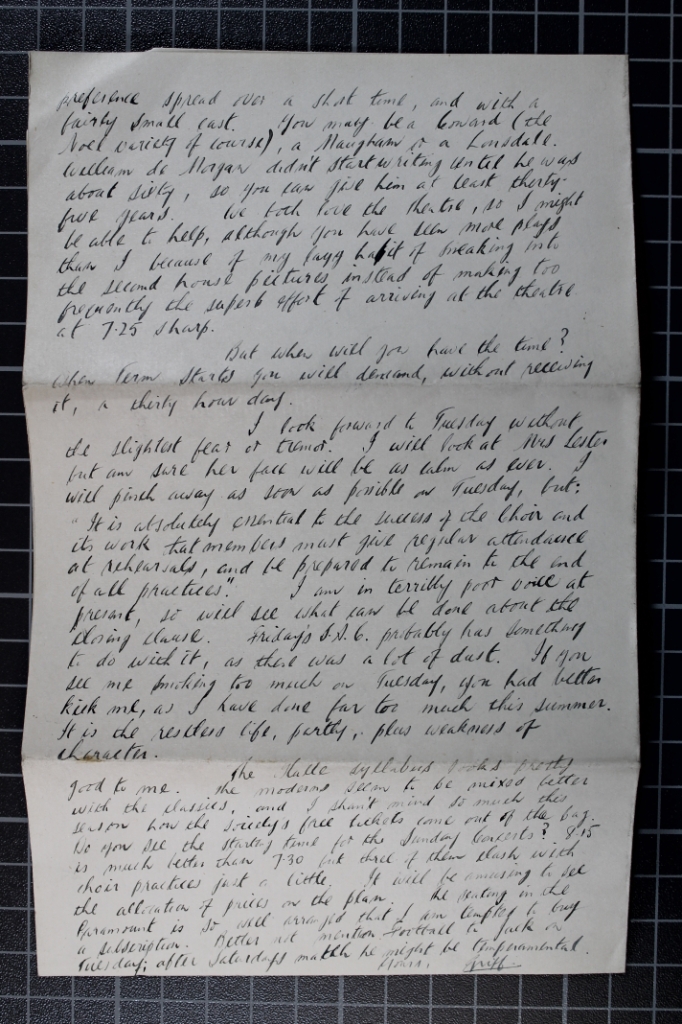 preference spread over a short time, and with a
fairly small cast. You may be a Coward (the
Noel variety of course), a Maugham or a Lonsdale.
William de Morgan didn't start writing until he was
about sixty, so you can give him at least thirty-
five years. We both love the theatre, so I might
be able to help, although you have seen more plays
than I because of my lazy habit of sneaking into
the second house pictures instead of making too
frequently the superb effort of arriving at the theatre
at 7.25 sharp.
But when will you have the time?
When Term starts you will demand, without receiving
it, a thirty hour day.
I look forward to Tuesday without
the slightest fear or tremor. I will look at Mrs Lester
but am sure her face will be as calm as ever. I
will pinch away as soon as possible on Tuesday, but:
"It is absolutely essential to the success of the Choir and
its work that members must give regular attendance
at rehearsals, and be prepared to remain to the end
of all practices". I am in terribly poor voice at
present, so will see what can be done about the
closing clause. Friday's probably has something
to do with it, as there was a lot of dust. If you
see me smoking too much on Tuesday, you had better
kick me, as I have done far too much this summer.
It is the restless life, partly, plus weakness of
character.
The Halle syllabus looks pretty
good to me. The moderns seem to be mixed better
with the classics, and I shan't mind so much this
season how the Society's free tickets come out of the bag.
Do you see the starting time for the Sunday Concerts? 8.15
is much better than 7.30 but three of them clash with
choir practices just a little. It will be amusing to see
the allocation of prices on the plan. The seating in the
Paramount is so well arranged that I am tempted to buy
a subscription. Better not mention Football to Jack on
Tuesday; after Saturdays match he might be temperamental.
Yours, Griff